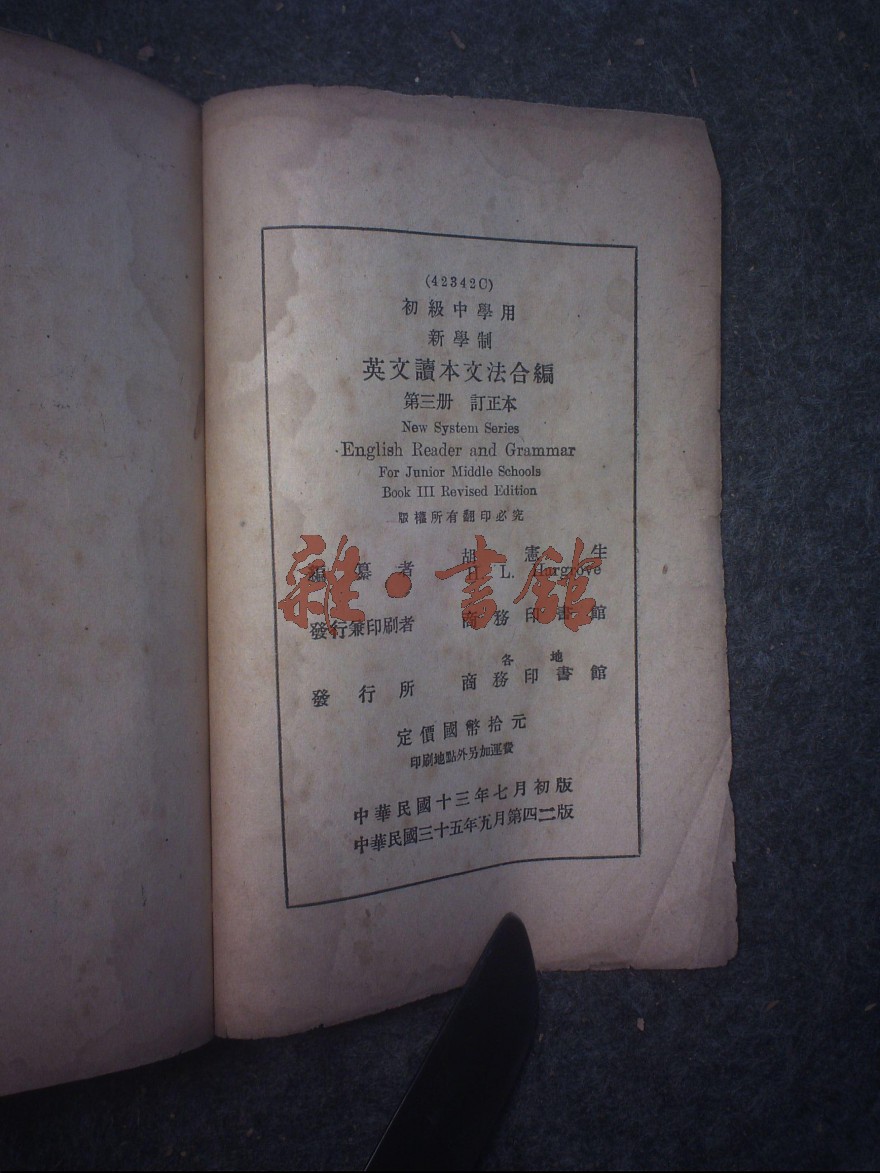 (42342C)
初級中學用
新學制
英文讀本文法合編
第三册 訂正本
New System Series
English Reader and Grammar
For Junior Middle Schools
Book III Revised Edition
版權所有翻印必究
編纂者 胡憲生
H. L. Hargrove
雜·書館
發行兼印刷者 商務印書館
各地
發行所 商務印書館
定價國幣拾元
印刷地點外另加運費
中華民國十三年七月初版
中華民國三十五年九月第四二版